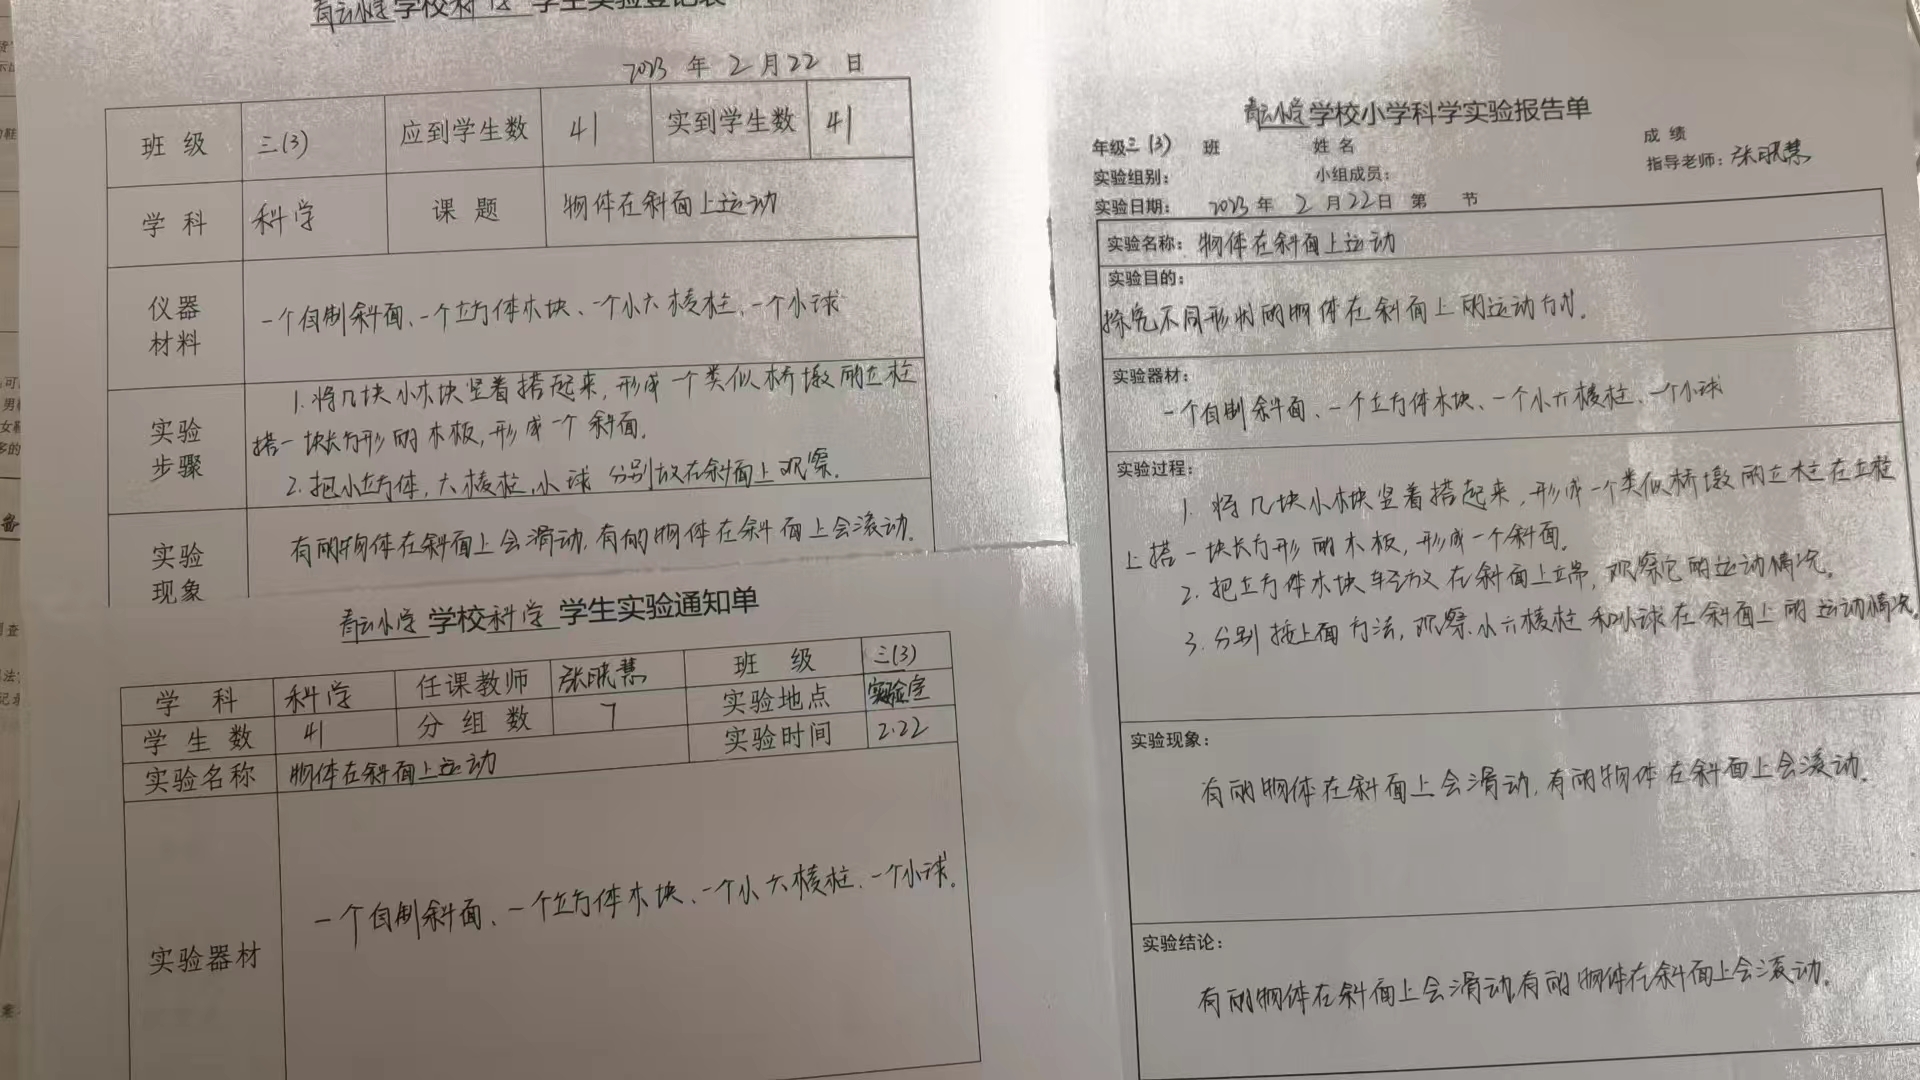 青云小学 学校科学 学生实验登记表
2023 年 2 月 22 日
班 级 三(3) 应到学生数 41 实到学生数 41
学 科 科学 课 题 物体在斜面上运动
仪器材料 一个自制斜面、一个立方体木块、一个小六棱柱、一个小球
实验步骤
1.将几块小木块竖着搭起来,形成一个类似桥墩的立柱
搭一块长方形的木板,形成一个斜面。
2.把小立方体,六棱柱,小球 分别放在斜面上观察。
实验现象 有的物体在斜面上会滑动,有的物体在斜面上会滚动。
青云小学 学校科学 学生实验通知单
学 科 科学 任课教师 张晓慧 班 级 三(3)
学 生 数 41 分 组 数 7 实验地点 实验室
实验时间 2.22
实验名称 物体在斜面上运动
实验器材 一个自制斜面、一个立方体木块、一个小六棱柱、一个小球。
青云小学 学校小学科学实验报告单
年级三(3) 班 姓 名 成 绩
实验组别: 小组成员: 指导老师:张晓慧
实验日期: 2023 年 2 月 22 日 第 节
实验名称:物体在斜面上运动
实验目的:
探究不同形状的物体在斜面上的运动方式。
实验器材:
一个自制斜面、一个立方体木块、一个小六棱柱、一个小球
实验过程:
1.将几块小木块竖着搭起来,形成一个类似桥墩的立柱在立柱
上搭一块长方形的木板,形成一个斜面。
2.把立方体木块轻放在斜面上端,观察它的运动情况。
3.分别按上面方法,观察小六棱柱和小球在斜面上的运动情况。
实验现象:
有的物体在斜面上会滑动,有的物体在斜面上会滚动。
实验结论:
有的物体在斜面上会滑动,有的物体在斜面上会滚动。